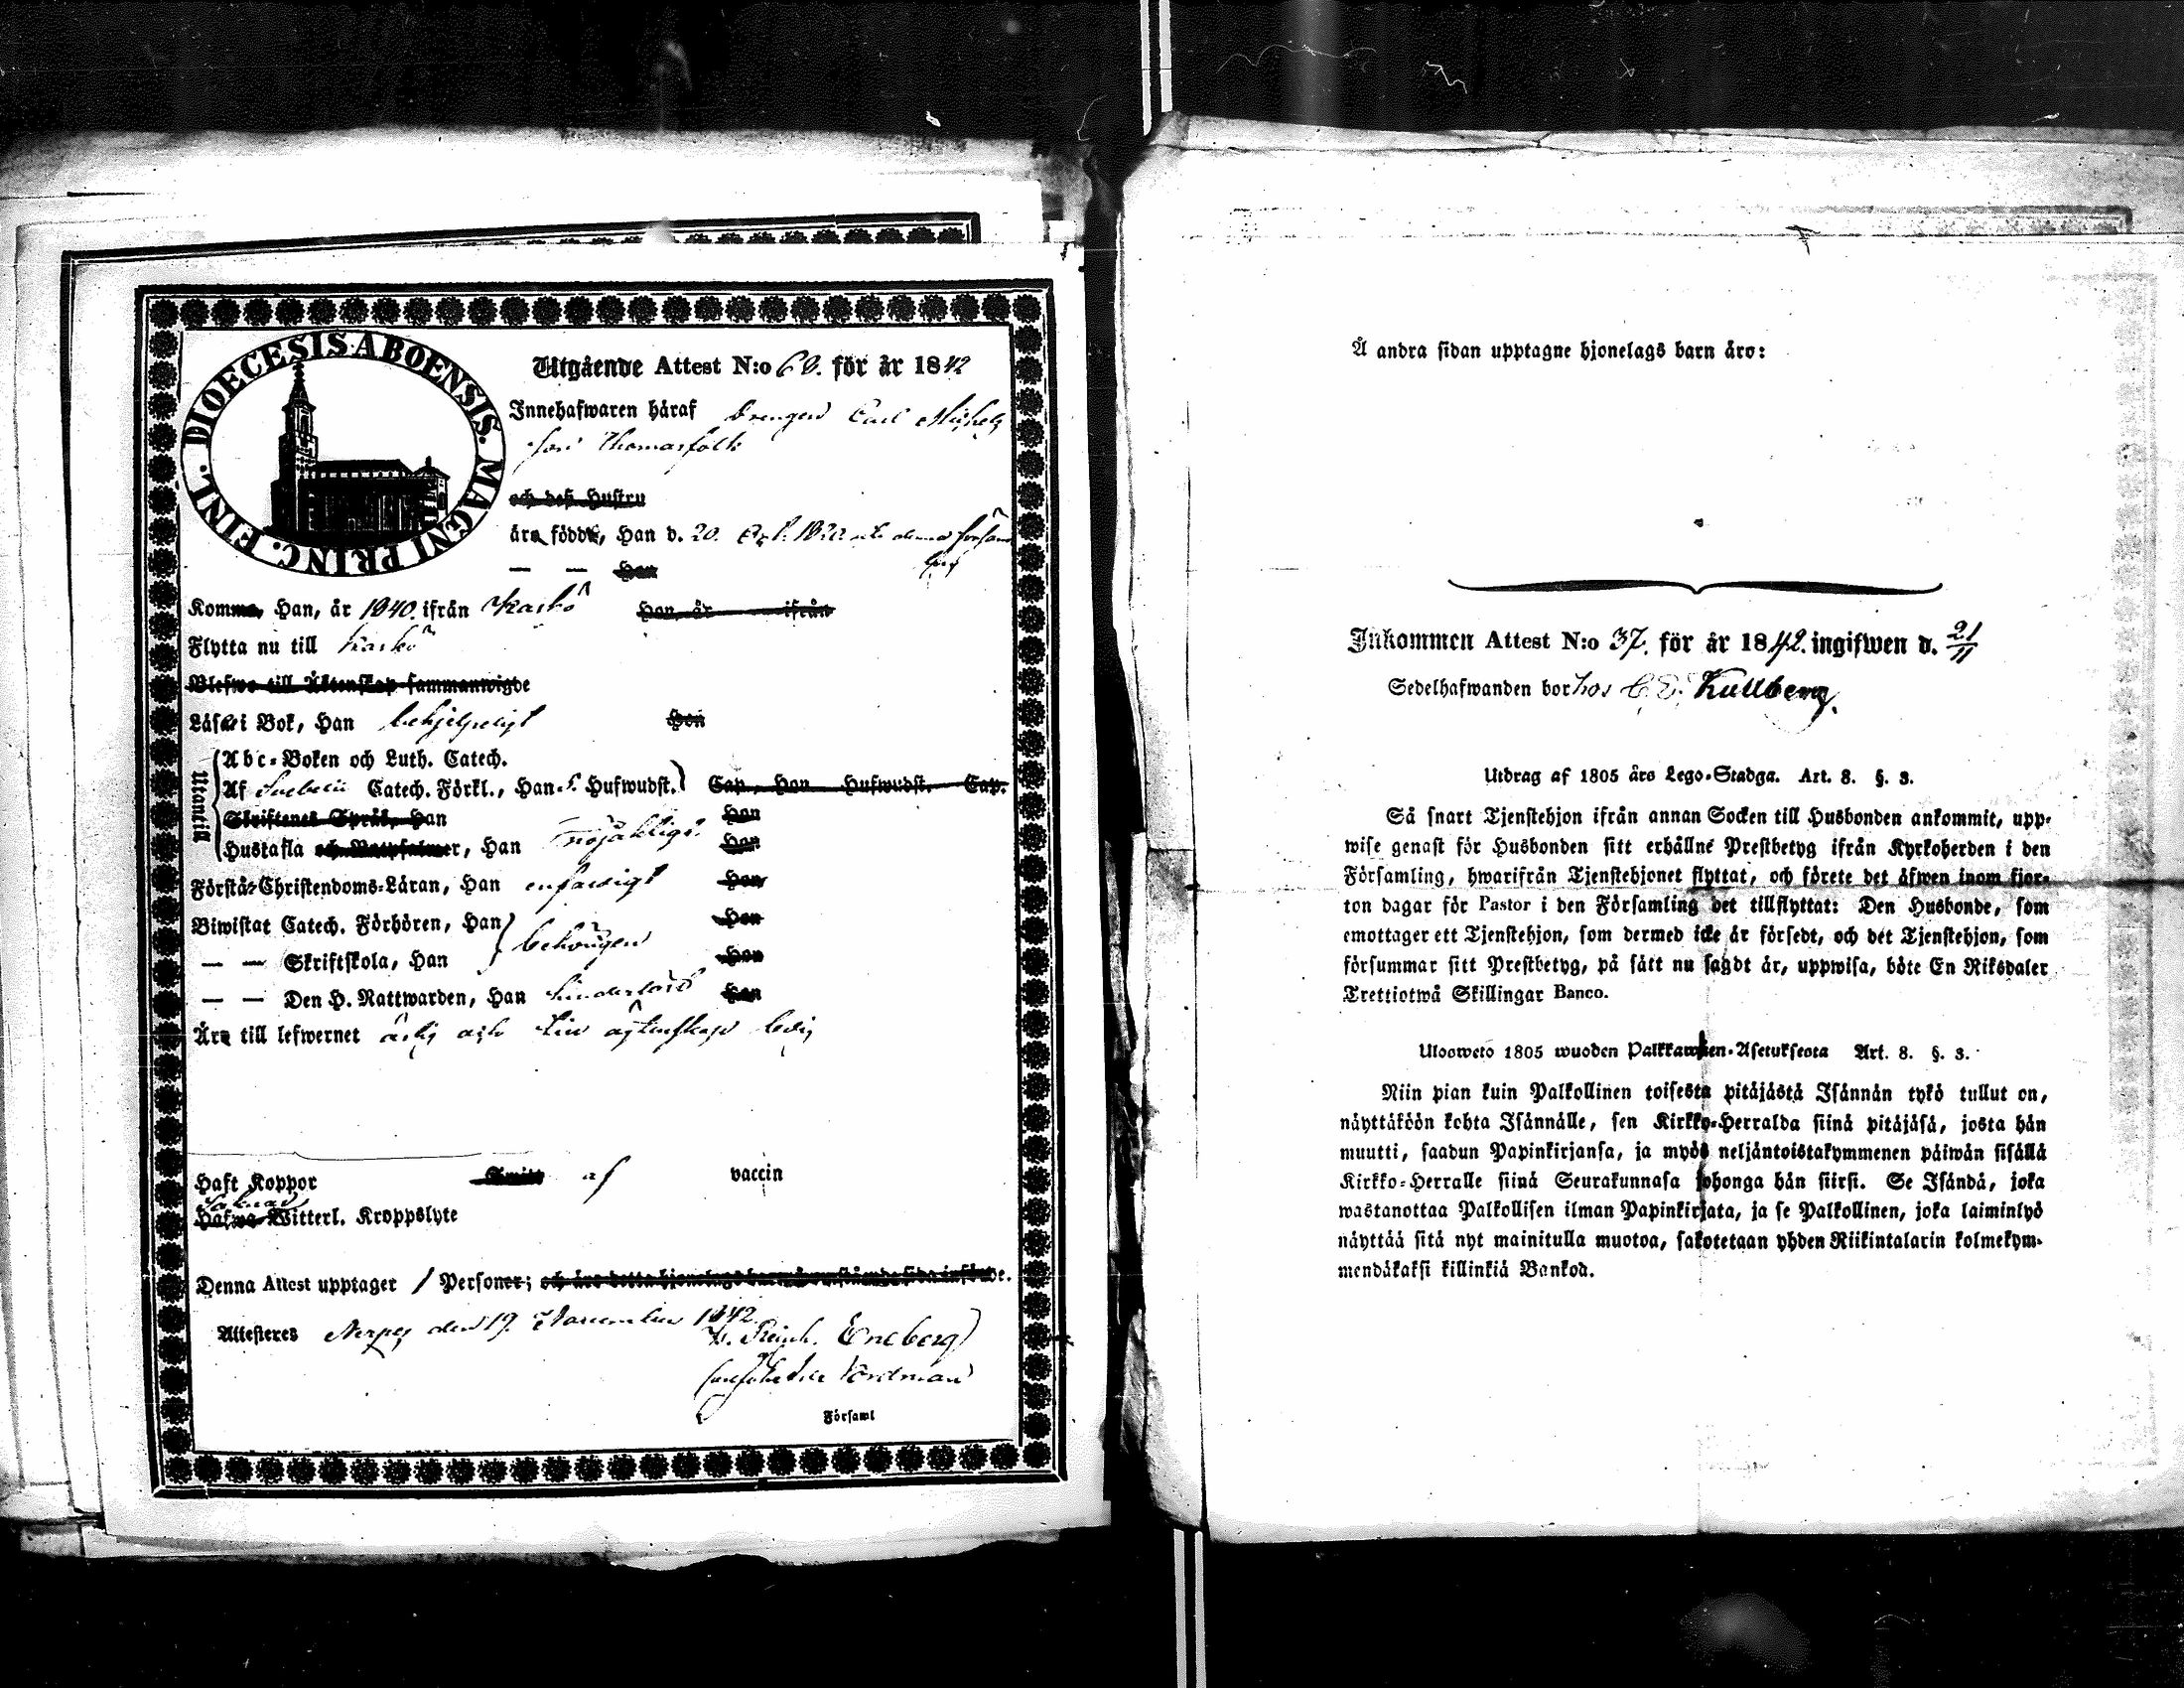 DIOECESIS ABOENSIS. MAGNI PRINC. FINL.
Utgående Attest N:o 60. för år 1842
Innehafwaren håraf Drengen Carl Michels
son Thomasfolk
och deß Hustru
åro födde, Han d. 20. 1822 i denna försam
ling
— — Hon
Komma, Han, år 1840. ifrån Kaskö Hon, år ifrån
Flytta nu till Kaskö
Blefwo till Åktenskap sammanwigde
Låsa i Bok, Han behjelpeligt Hon
Utantill
Abc-Boken och Luth. Catech.
Af Svebelii Catech. Förkl., Han 5. Hufwudst. Cap., Hon Hufwudst. Cap.
Skriftenes Språk, Han Hon
Hustafla och Botpsalmer, Han nöjaktigt. Hon
Förstå Christendoms-Låran, Han enfaldigt Hon
Biwistat Catech. Förhören, Han Hon
— — Skriftskola, Han behörigen Hon
— — Den H. Nattwarden, Han hinderlös Hon
Åro till lefwernet ärlig och till ägtenskap ledig
Haft Koppor Smitt af vaccin
Saknar
Hafwa Witterl. Kroppslyte
Denna Attest upptager 1 Personer; och åro detta hjonelags barn å omstående sida införde.
Attesteres Nerpes den 19. November 1842.
Reinh. Eneberg
Nordman
Församl
Å andra sidan upptagne hjonelags barn åro:
Inkommen Attest N:o 37. för år 1842. ingifwen d. 21/11
Sedelhafwanden bor hos C. E. Kullberg.
Utdrag af 1805 års Lego-Stadga. Art. 8. §. 3.
Så snart Tjenstehjon ifrån annan Socken till Husbonden ankommit, upp-
wise genast för Husbonden sitt erhållne Prestbetyg ifrån Kyrkoherden i den
Församling, hwarifrån Tjenstehjonet flyttat, och förete det åfwen inom fjor-
ton dagar för Pastor i den Församling det tillflyttat: Den Husbonde, som
emottager ett Tjenstehjon, som dermed icke år försedt, och det Tjenstehjon, som
försummar sitt Prestbetyg, på sått nu sagdt år, uppwisa, böte En Riksdaler
Trettiotwå Skillingar Banco.
Ulosweto 1805 wuoden Palkkawäen-Asetuksesta Art. 8. §. 3.
Niin pian kuin Palkollinen toisesta pitåjåstå Isånnån tykö tullut on,
nåyttåköön kohta Isånnålle, sen Kirkko-Herralda siinå pitåjåså, josta hån
muutti, saadun Papinkirjansa, ja myös neljåntoistakymmenen påiwån sisållå
Kirkko-Herralle siinå Seurakunnasa johonga hån siirsi. Se Isåndå, joka
wastanottaa Palkollisen ilman Papinkirjata, ja se Palkollinen, joka laiminlyö
nåyttåå sitå nyt mainitulla muotoa, sakotetaan yhden Riikintalarin kolmekym-
mendåkaksi killinkiå Bankod.